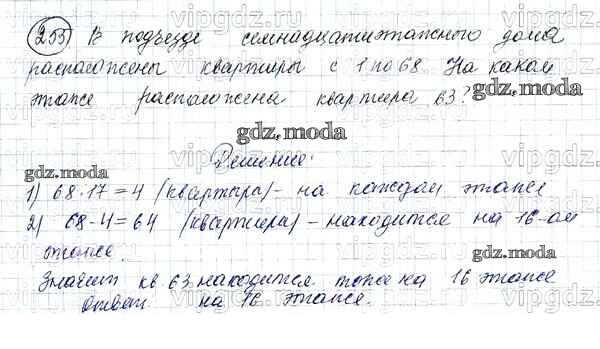 253) В подъезде семнадцатиэтажного дома
расположены квартиры с 1 по 68. На каком
этаже расположена квартира 63?
gdz.moda
gdz.moda
Решение:
gdz.moda
1) 68:17=4 (квартыра) - на каждом этаже
2) 68-4=64 (квартира) - находится на 16-ом
этаже.
gdz.moda
gdz.moda
Значит кв. 63 находится тоже на 16 этаже
Ответ на 16 этаже.